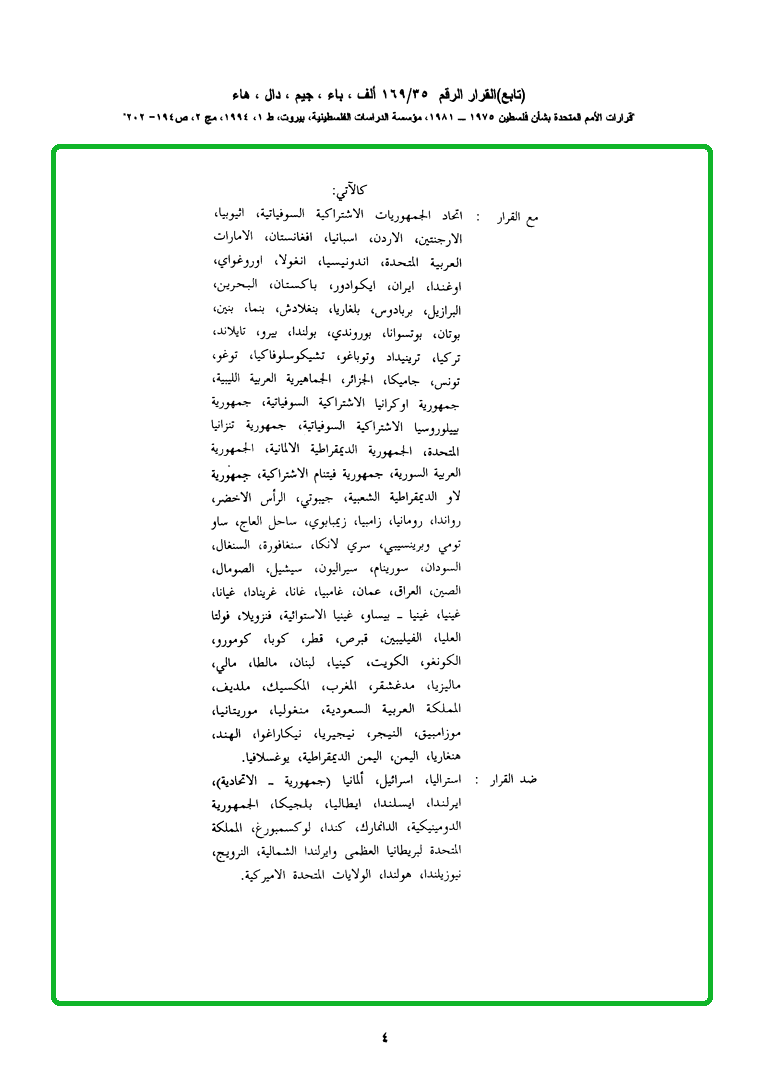 (تابع)القرار الرقم ١٦٩/٣٥ ألف ، باء ، جيم ، دال ، هاء
"قرارات الأمم المتحدة بشأن فلسطين ١٩٧٥ ــ ١٩٨١، مؤسسة الدراسات الفلسطينية، بيروت، ط ١، ١٩٩٤، مج ٢، ص١٩٤- ٢٠٢"
كالآتي:
مع القرار : اتحاد الجمهوريات الاشتراكية السوفياتية، اثيوبيا،
الارجنتين، الاردن، اسبانيا، افغانستان، الامارات
العربية المتحدة، اندونيسيا، انغولا، اوروغواي،
اوغندا، ايران، ايكوادور، باكستان، البحرين،
البرازيل، بربادوس، بلغاريا، بنغلادش، بنما، بنين،
بوتان، بوتسوانا، بوروندي، بولندا، بيرو، تايلاند،
تركيا، ترينيداد وتوباغو، تشيكوسلوفاكيا، توغو،
تونس، جاميكا، الجزائر، الجماهيرية العربية الليبية،
جمهورية اوكرانيا الاشتراكية السوفياتية، جمهورية
بييلوروسيا الاشتراكية السوفياتية، جمهورية تنزانيا
المتحدة، الجمهورية الديمقراطية الالمانية، الجمهورية
العربية السورية، جمهورية فيتنام الاشتراكية، جمهورية
لاو الديمقراطية الشعبية، جيبوتي، الرأس الاخضر،
رواندا، رومانيا، زامبيا، زيمبابوي، ساحل العاج، ساو
تومي وبرينسيبي، سري لانكا، سنغافورة، السنغال،
السودان، سورينام، سيراليون، سيشيل، الصومال،
الصين، العراق، عمان، غامبيا، غانا، غرينادا، غيانا،
غينيا، غينيا ــ بيساو، غينيا الاستوائية، فنزويلا، فولتا
العليا، الفيليبين، قبرص، قطر، كوبا، كومورو،
الكونغو، الكويت، كينيا، لبنان، مالطا، مالي،
ماليزيا، مدغشقر، المغرب، المكسيك، ملديف،
المملكة العربية السعودية، منغوليا، موريتانيا،
موزامبيق، النيجر، نيجيريا، نيكاراغوا، الهند،
هنغاريا، اليمن، اليمن الديمقراطية، يوغسلافيا.
ضد القرار : استراليا، اسرائيل، ألمانيا (جمهورية ــ الاتحادية)،
ايرلندا، ايسلندا، ايطاليا، بلجيكا، الجمهورية
الدومينيكية، الدانمارك، كندا، لوكسمبورغ، المملكة
المتحدة لبريطانيا العظمى وايرلندا الشمالية، النرويج،
نيوزيلندا، هولندا، الولايات المتحدة الاميركية.
٤